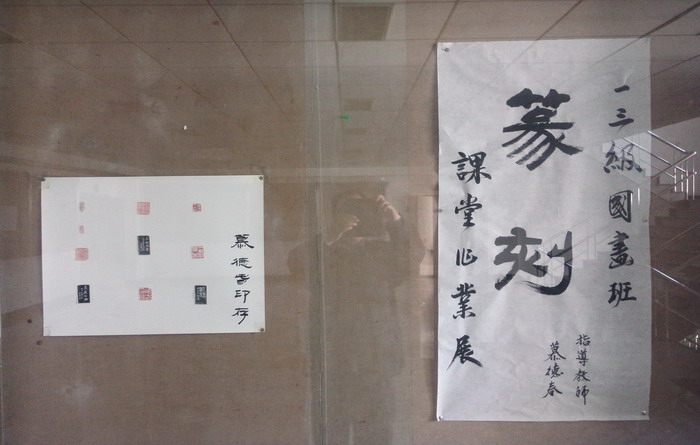 一三級國畫班
篆刻
課堂作業展
指導教師
慕德春
慕德春印存